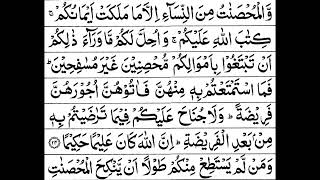 وَّالْمُحْصَنٰتُ مِنَ النِّسَآءِ اِلَّا مَا مَلَكَتْ اَيْمَانُكُمْ ۚ
كِتٰبَ اللّٰهِ عَلَيْكُمْ ۚ وَاُحِلَّ لَكُمْ مَّا وَرَآءَ ذٰلِكُمْ
اَنْ تَبْتَغُوْا بِاَمْوَالِكُمْ مُّحْصِنِيْنَ غَيْرَ مُسٰفِحِيْنَ ؕ
فَمَا اسْتَمْتَعْتُمْ بِهٖ مِنْهُنَّ فَاٰتُوْهُنَّ اُجُوْرَهُنَّ
فَرِيْضَةً ؕ وَلَا جُنَاحَ عَلَيْكُمْ فِيْمَا تَرٰضَيْتُمْ بِهٖ
مِنْۢ بَعْدِ الْفَرِيْضَةِ ؕ اِنَّ اللّٰهَ كَانَ عَلِيْمًا حَكِيْمًا ۝۲۴
وَمَنْ لَّمْ يَسْتَطِعْ مِنْكُمْ طَوْلًا اَنْ يَّنْكِحَ الْمُحْصَنٰتِ